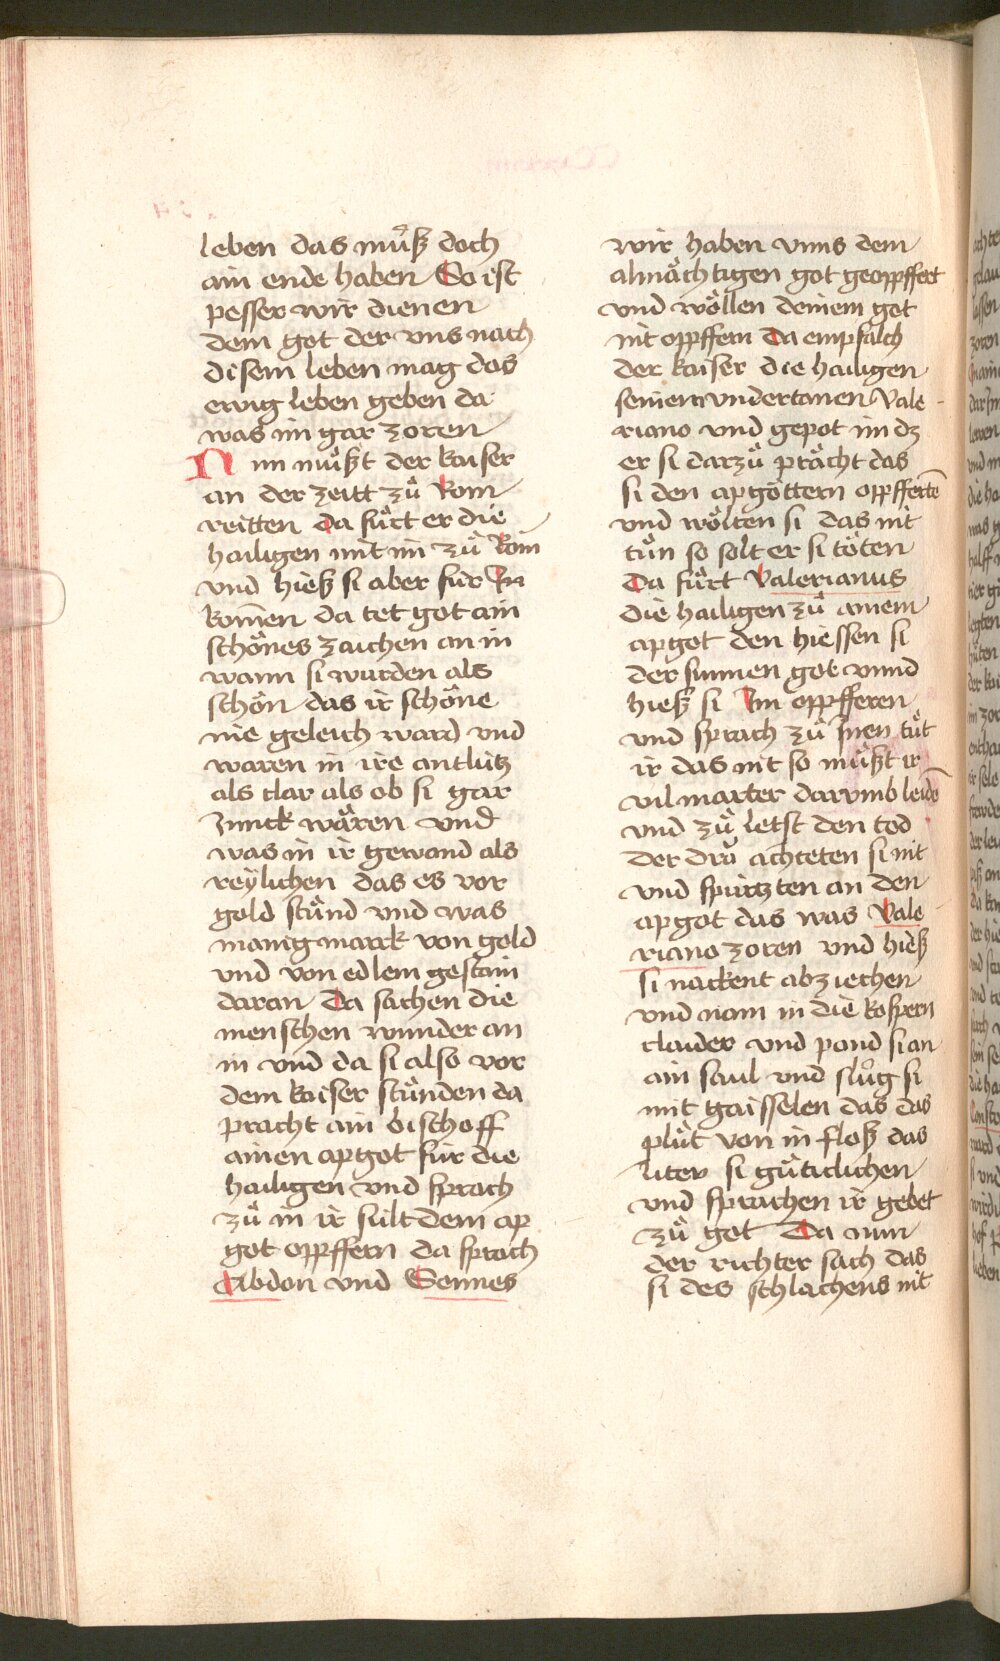 leben das muͦß doch
ain ende haben So ist
pesser wir dienen
dem got der vns nach
disem leben mag das
ewig leben geben da
was im gar zoren
Nun muͤßt der kaiser
an der zeitt zuͦ Rom
reitten da fuͤrt er die
hailigen mit im zuͦ Rom
vnd hieß si aber für In
kom̄en da tet got ain
schoͤnes zaichen an in
wann si wurden als
schoͤn das ir schoͤne
nie geleich ward vnd
waren in ire antlütz
als clar als ob si gar
Junck waͤren vnd
was in ir gewand als
reylichen das es vor
gold stuͤnd vnd was
manig marck von gold
vnd von edlem gestain
daran Da sachen die
menschen wunder an
in vnd da si also vor
dem kaiser stuͤnden da
pracht ain bischoff
ainen apgot für die
hailigen vnd sprach
zuͦ in ir sült dem ap
got oppffern da sprach
Abdon vnd Sennes
wir haben vnns dem
almaͤchtigen got geoppffert
vnd woͤllen deinem got
nit oppffern Da empfalch
der kaiser die hailigen
seinem vndertanen Vale-
riano vnd gepot im dz
er si darzuͦ praͤcht das
si den apgoͤttern oppffertē
vnd woͤlten si das nit
tuͦn so solt er si toͤten
Da fuͤrt Valerianus
die hailigen zuͦ ainem
apgot den hiessen si
der sunnen got vnnd
hieß si Im oppfferen
vnd sprach zuͦ Inen tuͦt
ir das nit so muͤßt ir
vil marter darvmb leidē
vnd zuͦ letst den tod
Der dro achteten si nit
vnd spürtzten an den
apgot das was Vale
riano zoren vnd hieß
si nackent abziechen
vnd nam in die kospern
claider vnd pand si an
ain saul vnd sluͦg si
mit gaisselen das das
pluͦt von in floß das
liten si guͤticlichen
vnd sprachen ir gebet
zuͦ got Da nun
der richter sach das
si des schlachens nit